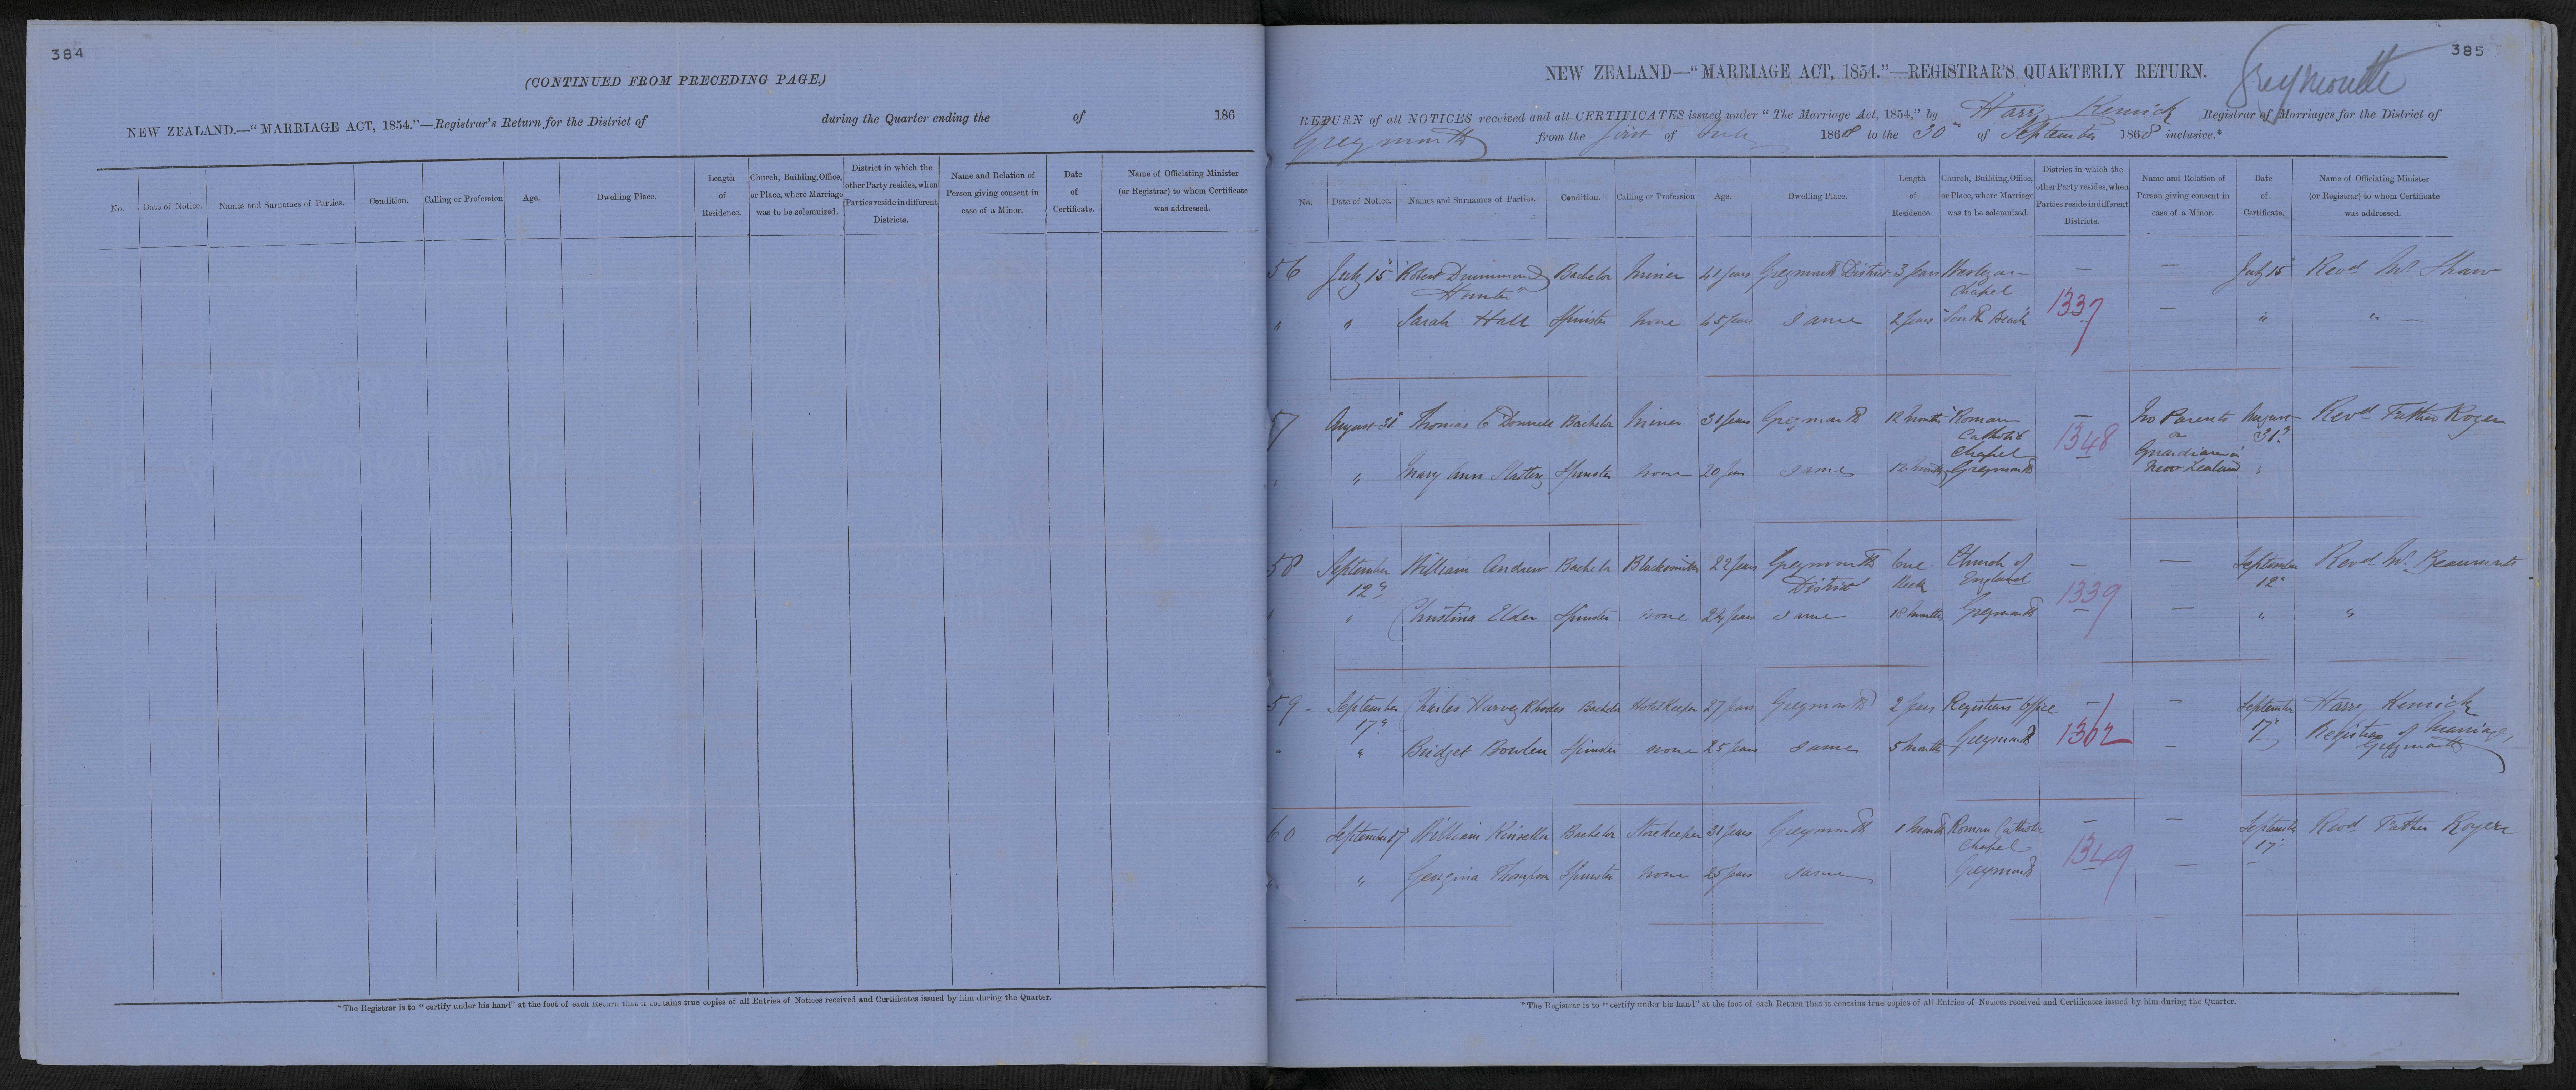 384
(CONTINUED FROM PRECEDING PAGE.)
NEW ZEALAND.—"MARRIAGE ACT, 1854."—Registrar's Return for the District of during the Quarter ending the of 186
No. Date of Notice. Names and Surnames of Parties. Condition. Calling or Profession Age. Dwelling Place. Length of Residence. Church, Building, Office, or Place, where Marriage was to be solemnized. District in which the other Party resides, when Parties reside in different Districts. Name and Relation of Person giving consent in case of a Minor. Date of Certificate. Name of Officiating Minister (or Registrar) to whom Certificate was addressed.
*The Registrar is to "certify under his hand" at the foot of each Return that it contains true copies of all Entries of Notices received and Certificates issued by him during the Quarter.
385
Greymouth
NEW ZEALAND—"MARRIAGE ACT, 1854."—REGISTRAR'S QUARTERLY RETURN.
RETURN of all NOTICES received and all CERTIFICATES issued under "The Marriage Act, 1854," by Harry Kenrick Registrar of Marriages for the District of
Greymouth from the first of July 1868 to the 30" of September 1868 inclusive.*
No. Date of Notice. Names and Surnames of Parties. Condition. Calling or Profession Age. Dwelling Place. Length of Residence. Church, Building, Office, or Place, where Marriage was to be solemnized. District in which the other Party resides, when Parties reside in different Districts. Name and Relation of Person giving consent in case of a Minor. Date of Certificate. Name of Officiating Minister (or Registrar) to whom Certificate was addressed.
56 July 15" Robert Drummond Bachelor Miner 41 years Greymouth District 3 years Wesleyan — — July 15" Revd Mr Shaw
Hunter Chapel
" " Sarah Hall Spinster none 45 years same 2 years South Beach 1337 — " "
57 August 31 Thomas O'Donnell Bachelor Miner 31 years Greymouth 12 months Roman — No Parents August Revd Father Royer
Catholic or 31
Chapel 1348 Guardians in
" " Mary Ann Slattery Spinster none 20 years same 12 months Greymouth New Zealand "
58 September William Andrew Bachelor Blacksmith 22 years Greymouth One Church of — — September Revd Mr Beaumont
12" District Week England 1339 12"
" " Christina Elder Spinster none 24 years same 18 months Greymouth — " "
59 - September Charles Harvey Rhodes Bachelor Hotelkeeper 27 years Greymouth 2 years Registrars Office — — September Harry Kenrick
17" 1362 17" Registrar of Marriages
" " Bridget Bowden Spinster none 25 years same 5 months Greymouth — Greymouth
60 September 17" William Kinsella Bachelor Storekeeper 31 years Greymouth 1 Month Roman Catholic — — September Revd Father Royer
Chapel 1349 17"
" " Georgina Thompson Spinster none 25 years same Greymouth —
*The Registrar is to "certify under his hand" at the foot of each Return that it contains true copies of all Entries of Notices received and Certificates issued by him during the Quarter.